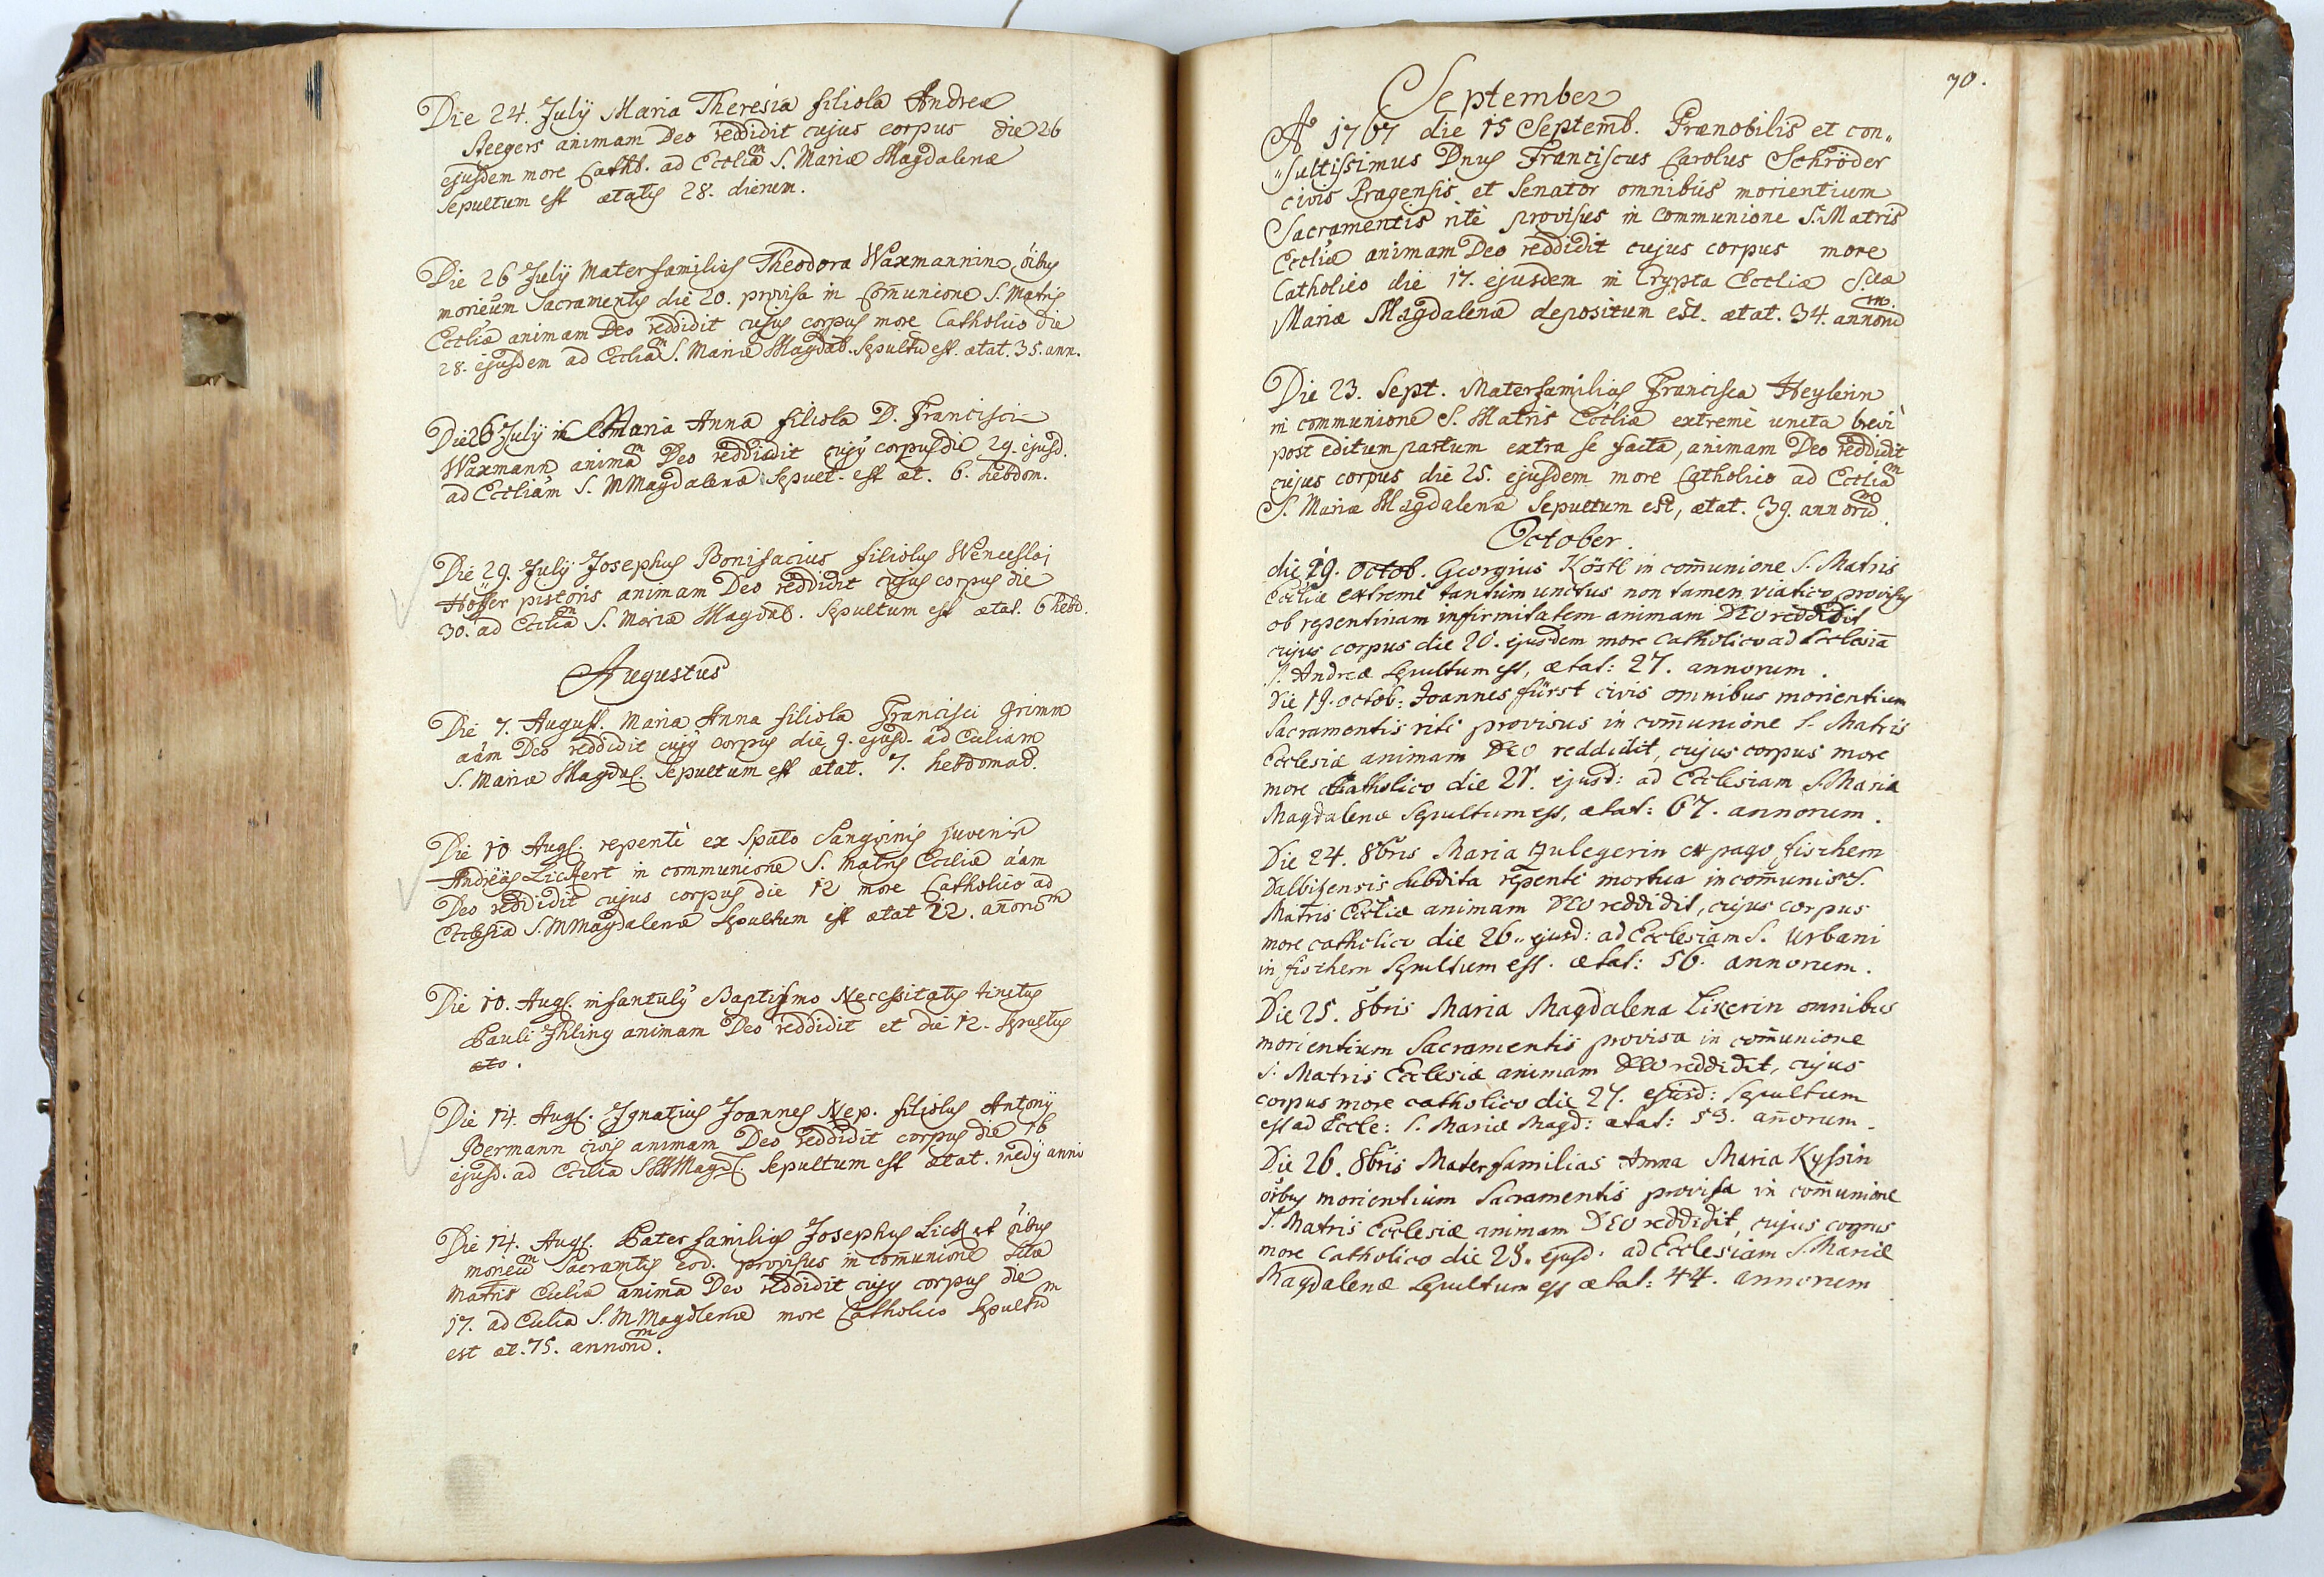 Die 24. July Maria Theresia filiola Andreæ
Steegers animam Deo reddidit cujus corpus die 26
ejusdem more Cathol. ad Eccliam S. Mariæ Magdalenæ
Sepultum est ætatis 28. dierum.
Die 26 July Materfamilias Theodora Waxmannin oibus
morieum Sacramentis die 20. provisa in Comunione S. Matris
Eccliæ animam Deo reddidit cujus corpus more Catholico die
28. ejusdem ad Eccliam S. Mariæ Magdal. Sepultu est. ætat. 35. ann.
Die 26 July Maria Anna filiola D. Francisci
Waxmann animam Deo reddidit cujus corpus die 29. ejusd.
ad Eccliam S. M Magdalenæ Sepult. est æt. 6. hebdom.
Die 29. July Josephus Bonifacius filiolus Wenceslai
Höffer pistoris animam Deo reddidit cujus corpus die
30. ad Eccliam S. Mariæ Magdal. Sepultum est ætat. 6 hebd.
Augustus
Die 7. August. Maria Anna filiola Francisci Grimm
aam Deo reddidit cujus corpus die 9. ejusd. ad Ecliam
S. Mariæ Magdal. Sepultum est ætat. 7. hebdomad.
Die 10 Aug. repentè ex Sputo Sangvinis juvenis
Andreas Lickert in communione S. Matris Eccliæ aam
Deo reddidit cujus corpus die 12 more Catholico ad
Ecclesia S. M Magdalenæ Sepultum est ætat 22. anorum
Die 10. Aug. infantulus Baptismo Necessitatis tinctus
Pauli Ihling animam Deo reddidit et die 12. Sepultus
æto.
Die 14. Aug. Ignatius Joannes Nep. filiolus Antony
Bermann civis animam Deo reddidit corpus die 16
ejusd. ad Eccliam S M Magd. Sepultum est ætat. medy anni
Die 14. Aug. Pater familias Josephus Lickert oibus
morieum Sacramtis eod. provisus in comunione Stæ
Matris Ecliæ anima Deo reddidit cujus corpus die
17. ad Eclia S. M Magdlenæ more Catholico Sepultum
est æt. 75. annorum.
70.
September
Aº 1767 die 15 Septemb. Prænobilis et con„
„sultissimus Dnus Franciscus Carolus Schröder
civis Pragensis et Senator omnibus morientium
Sacramentis ritè provisus in communione S. Matris
Eccliæ animam Deo reddidit cujus corpus more
Catholico die 17. ejusdem in Crypta Eccliæ S.tæ
Mariæ Magdalenæ depositum est. ætat. 34. annorum
Die 23. Sept. Materfamilias Francisca Heylerin
in communione S. Matris Eccliæ extremè uncta brevi
post editum partum extra se facta, animam Deo reddidit
cujus corpus die 25. ejusdem more Catholico ad Eccliam
S. Mariæ Magdalenæ Sepultum est, ætat. 39. annorum.
October.
die 19. octob. Georgius Köstl in comunione S. Matris
Eccliæ extremè tantùm unctus non tamen viatico provisus
ob repentinam infirmitatem animam DEO reddidit
cujus corpus die 20. ejusdem more Catholico ad Ecclesia
S. Andreæ sepultum est, ætat: 27. annorum.
Die 19. octob: Joannes Fürst civis omnibus morientium
Sacramentis ritè provisus in comunione S. Matris
Ecclesiæ animam DEO reddidit, cujus corpus more
more Catholico die 21. ejusd: ad Ecclesiam S. Mariæ
Magdalenæ Sepultum est, ætat: 67. annorum.
Die 24. 8bris Maria Zulegerin ex pago fischern
Dalbisensis subdita repentè mortua in comunio S.
Matris Eccliæ animam DEO reddidit, cujus corpus
more catholico die 26. ejusd: ad Ecclesiam S. Urbani
in fischern Sepultum est. ætat: 56. annorum.
Die 25. 8bris Maria Magdalena Likerin omnibus
morientium Sacramentis provisa in comunione
S. Matris Ecclesiæ animam DEO reddidit, cujus
corpus more catholico die 27. ejusd: sepultum
est ad Eccle: S. Mariæ Magd: ætat: 53. anorum.
Die 26. 8bris Materfamilias Anna Maria Kyssin
oibus morientium Sacramentis provisa in comunione
S. Matris Ecclesiæ animam DEO reddidit, cujus corpus
more Catholico die 28. ejusd: ad Ecclesiam S. Mariæ
Magdalenæ sepultum est ætat: 44. annorum